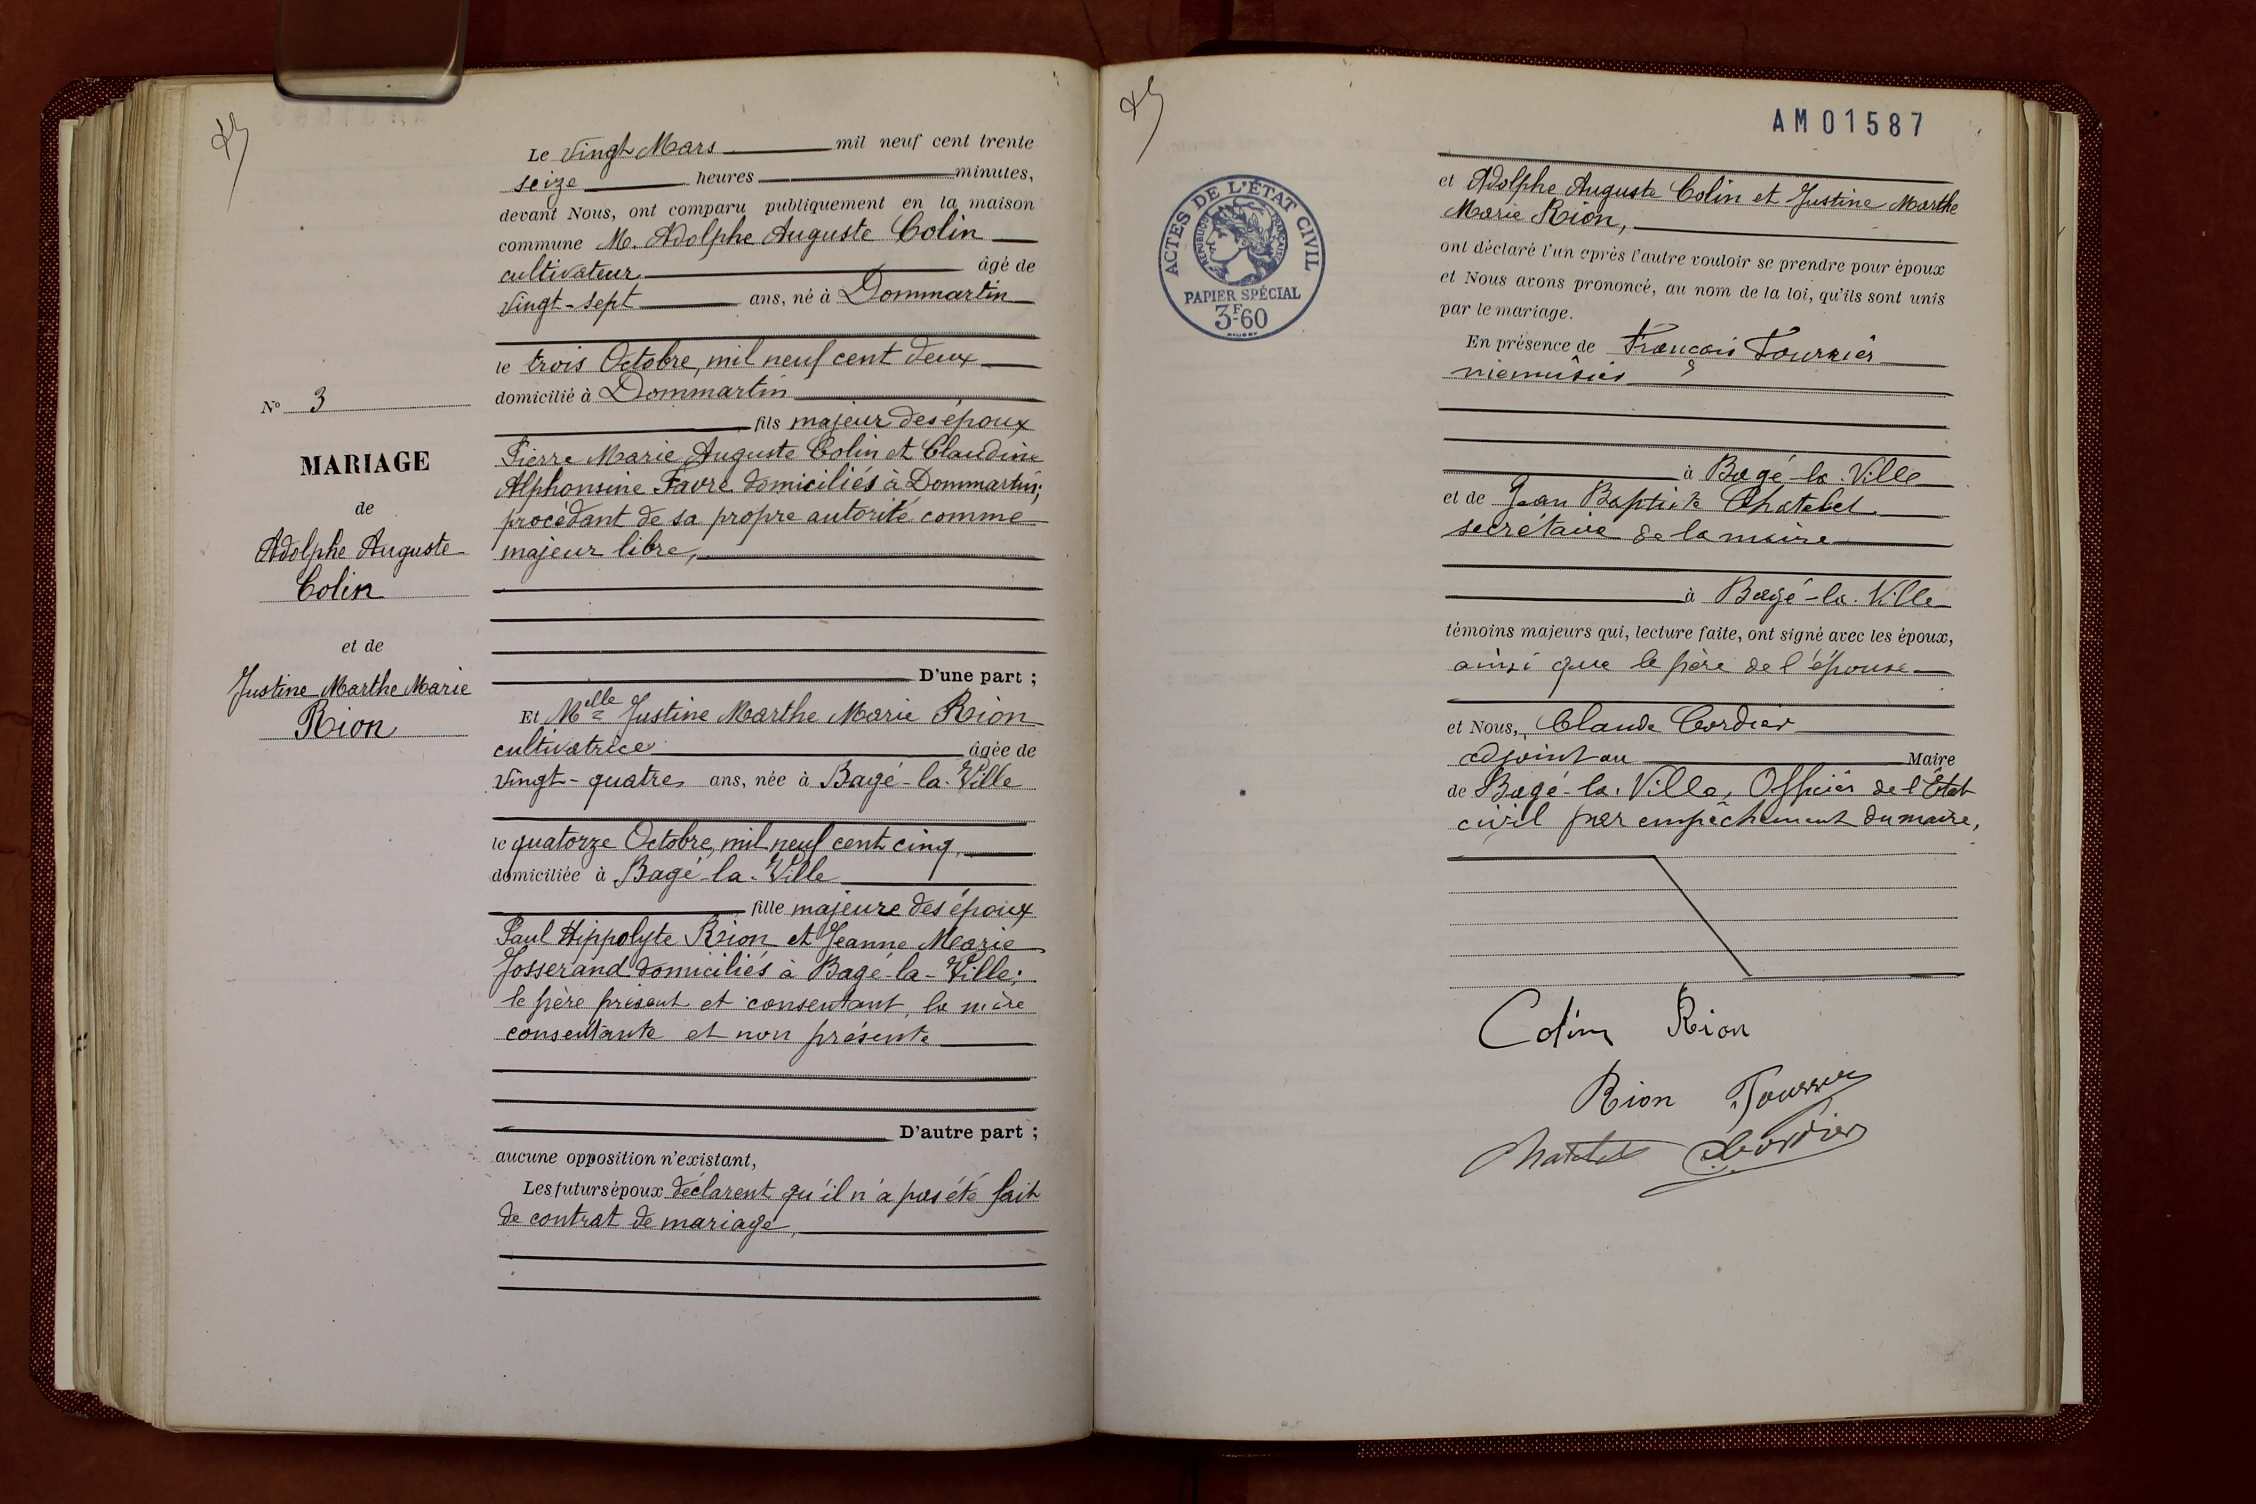 Le vingt Mars mil neuf cent trente
seize heures minutes,
devant Nous, ont comparu publiquement en la maison
commune M. Adolphe Auguste Colin
cultivateur âgé de
vingt-sept ans, né à Dommartin
le trois Octobre, mil neuf cent deux
domicilié à Dommartin
fils majeur des époux
Pierre Marie Auguste Colin et Claudine
Alphonsine Favre domiciliés à Dommartin;
procédant de sa propre autorité comme
majeur libre,
D'une part ;
Et Melle Justine Marthe Marie Rion
cultivatrice âgée de
vingt-quatre ans, née à Bagé-la-Ville
le quatorze Octobre, mil neuf cent cinq,
domiciliée à Bagé-la-Ville
fille majeure des époux
Paul Hippolyte Rion et Jeanne Marie
Josserand domiciliés à Bagé-la-Ville;
le père présent et consentant, la mère
consentante et non présente
D'autre part ;
aucune opposition n'existant,
Les futurs époux déclarent qu'il n'a pas été fait
de contrat de mariage,
No 3
MARIAGE
de
Adolphe Auguste
Colin
et de
Justine Marthe Marie
Rion
AM01587
ACTES DE L'ÉTAT CIVIL
RÉPUBLIQUE FRANÇAISE
PAPIER SPÉCIAL
3F60
et Adolphe Auguste Colin et Justine Marthe
Marie Rion,
ont déclaré l'un après l'autre vouloir se prendre pour époux
et Nous avons prononcé, au nom de la loi, qu'ils sont unis
par le mariage.
En présence de François Fourrier
menuisier
à Bagé-la-Ville
et de Jean Baptiste Chatelet
secrétaire de la mairie
à Bagé-la-Ville
témoins majeurs qui, lecture faite, ont signé avec les époux,
ainsi que le père de l'épouse
et Nous, Claude Cordier
adjoint au Maire
de Bagé-la-Ville, Officier de l'État
civil par empêchement du maire,
Colin Rion
Rion
Chatelet Cordier